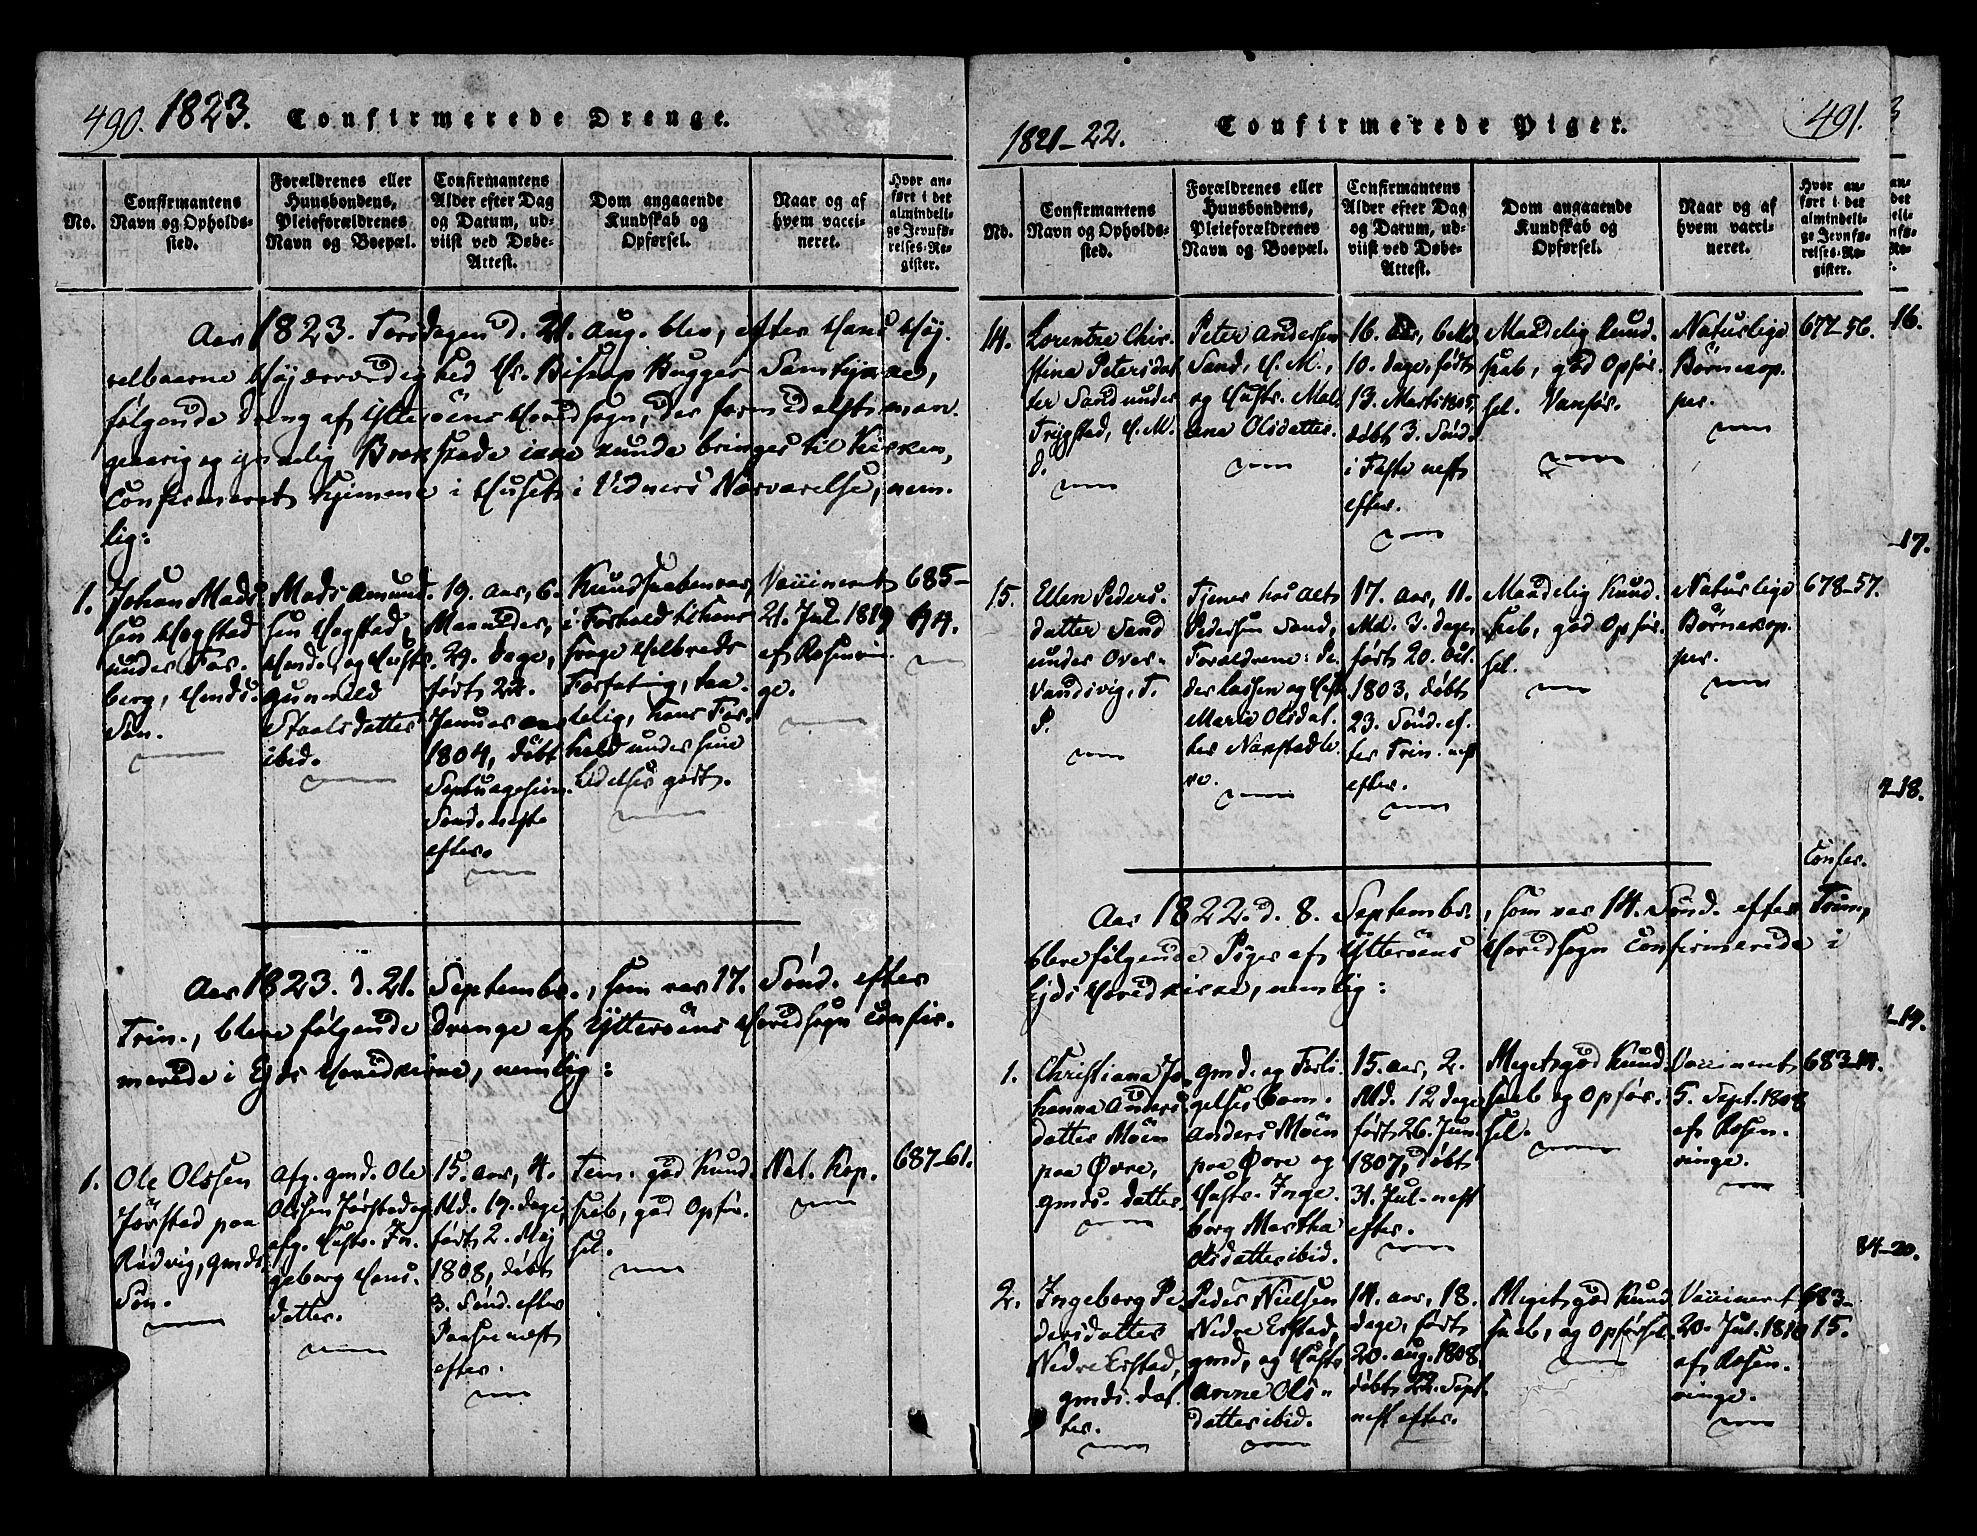 490. 1823. Confirmerede Drenge.
No.
Confirmantens
Navn og Opholds-
sted.
Forældrenes eller
Huusbondens,
Pleieforældrenes
Navn og Boepæl.
Confirmantens
Alder efter Dag
og Datum, ud-
viist ved Døbe-
Attest.
Dom angaaende
Kundskab og
Opførsel.
Naar og af
hvem vacci-
neret.
Hvor an-
ført i det
almindeli-
ge Jevnfø-
relses-Re-
gister.
Aar 1823. Torsdagen d. 21. Aug. blev, efter Hans Høj.
velbaarne Højærværdighed Hr. Biskop Bugges Samtykke,
følgende Dreng af Ytterøens Hovedsogn, der formedelst
og Brøkskade ikke kunde bringes til Kirken,
Confirmeret hjemme i Huset i Vidners Nærværelse, nem-
lig:
1.
Johan Mads
sen Hogstad
under For.
berg, Hmds.
Søn.
Mads Amund.
sen Hogstad,
Hmd. og Hust.
Gunnild
Staalsdatter
ibid.
19. Aar, 6.
Maaneder,
29. Dage,
født 22.
Januar
1804, døbt
Septuagesim.
Sønd. næst
efter.
Kundskaben var,
i Forhold til hans
svage Helbreds
Forfatning, taa.
lelig, hans For.
hold under sine
Lidelser godt.
Vaccineret
21. Jul. 1819
af Rosenvin.
ge.
685-
94.
Aar 1823. d. 21. Septembr., som var 17. Sønd. efter
Trin., bleve følgende Drenge af Ytterøens Hovedsogn Confir.
merede i Ejds Hovedkirke, nemlig:
1.
Ole Olssen
Jørstad paa
Rødvig, Gmds.
Søn.
Afg. Gmd. Ole
Olssen Jørstad og
afg. Hust. In.
geborg Hans.
datter.
15. Aar, 4.
Md. 19. Dage,
født 2. Maj
1808, døbt
3. Sønd. efter
Paaske næst
efter.
Tem. god Kund
skab, god Opfør.
sel.
Nat. Kop.
687-61.
1821-22. Confirmerede Piger. 491.
No.
Confirmantens
Navn og Opholds-
sted.
Forældrenes eller
Huusbondens,
Pleieforældrenes
Navn og Boepæl.
Confirmantens
Alder efter Dag
og Datum, ud-
viist ved Døbe-
Attest.
Dom angaaende
Kundskab og
Opførsel.
Naar og af
hvem vacci-
neret.
Hvor an-
ført i det
almindeli-
ge Jevnfø-
relses-Re-
gister.
14.
Lorentze Chri-
stina Petersdat
ter Sand under
Trygstad, H. M.
D.
Peter Andersen
Sand, H. M.,
og Hustr. Mal.
ena Olsdatter.
16. Aar, 6 Md.
10. Dage, født
13. Marts 1805,
døbt 3. Sønd.
i Faste næst
efter.
Maadelig Kund.
skab, god Opfør.
sel. Vanfør.
Naturlige
Børnekop.
per.
677-56.
15.
Ellen Peders.
datter Sand
under Over-
Vandsvig, T.
P.
Tjener hos Alt
Pedersen Sand,
Forældrene: Pe-
der Lassen og Hust.
Maria Olsdat.
ter Naustadle.
re.
17. Aar, 11.
Md. 3. Dage,
født 20. Oct.
1803, døbt
23. Sønd. ef.
ter Trin. næst
efter.
Maadelig Kund.
skab, god Opfør.
sel.
Naturlige
Børnekop.
per.
678-57.
Confer.
Aar 1822. d. 8. Septembr., som var 14. Sønd. efter Trin.,
bleve følgende Piger af Ytterøens Hovedsogn Confirmerede i
Ejds Hovedkirke, nemlig:
1.
Christiana Jo
hanna Anders
datter Moen
paa Øvre,
Gmds. Datter.
Gmd. og Forli.
gelses Com.
Anders Moen
paa Øvre og
Hustr. Inge.
borg Martha
Olsdatter ibid.
15. Aar, 2.
Md. 12 Dage
født 26. Jun.
1807, døbt
31. Jul. næst
efter.
Meget god Kund
skab og Opfør.
sel.
Vaccineret
5. Sept. 1808
af Rosen.
vinge.
683-14.
2.
Ingeborg Pe
dersdatter
Nedre Erstad,
Gmds. Dat.
ter.
Peder Nielsen
Nedre Erstad,
Gmd, og Hustr
Anne Ols-
datter ibid.
14. Aar, 18.
Dage, født
20. Aug. 1808.
døbt 22. Sept.
næst efter.
Meget god Kund
skab, og Opførsel.
Vaccineret
20. Jul. 1810
af Rosen.
vinge.
683-
15.
16.
-17.
-18.
-19.
84-20.